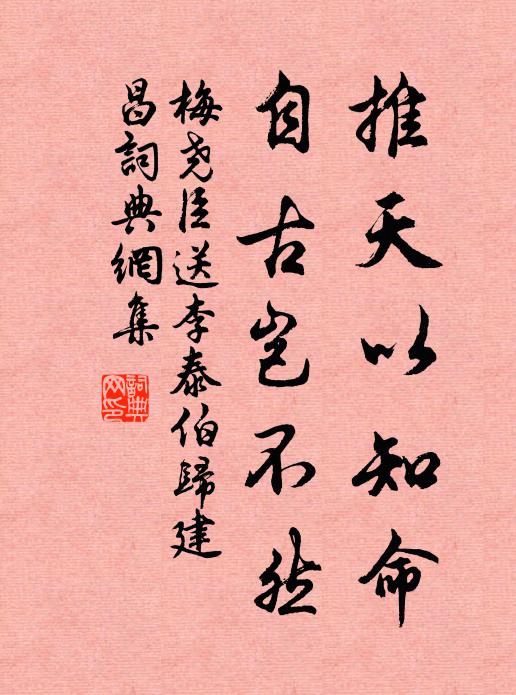 推天以知命
自古豈不然
梅尧臣送李泰伯歸建
昌詞典網集
詞典网印